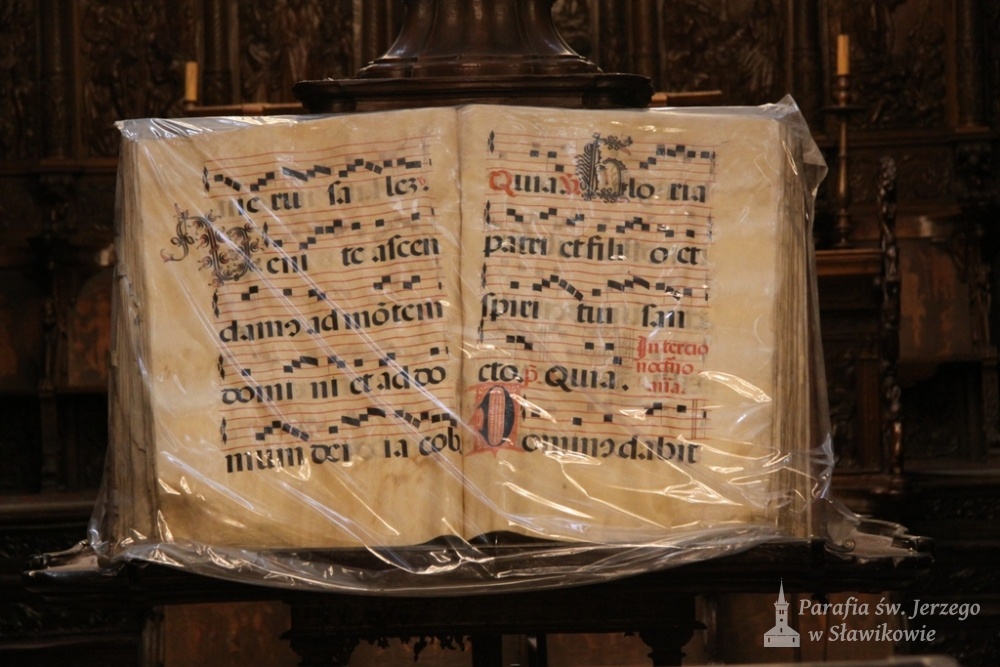 me rui sa lez.
Veni te ascen
damꝰ ad mõtem
domi ni et ad do
mum dei ia cob
Quia. V. Glo ria
patri et fili o et
spiri tui san
cto. p. Quia.
In tercio
nocturno
ana.
Dominꝰ dabit
Parafia św. Jerzego
w Sławikowie